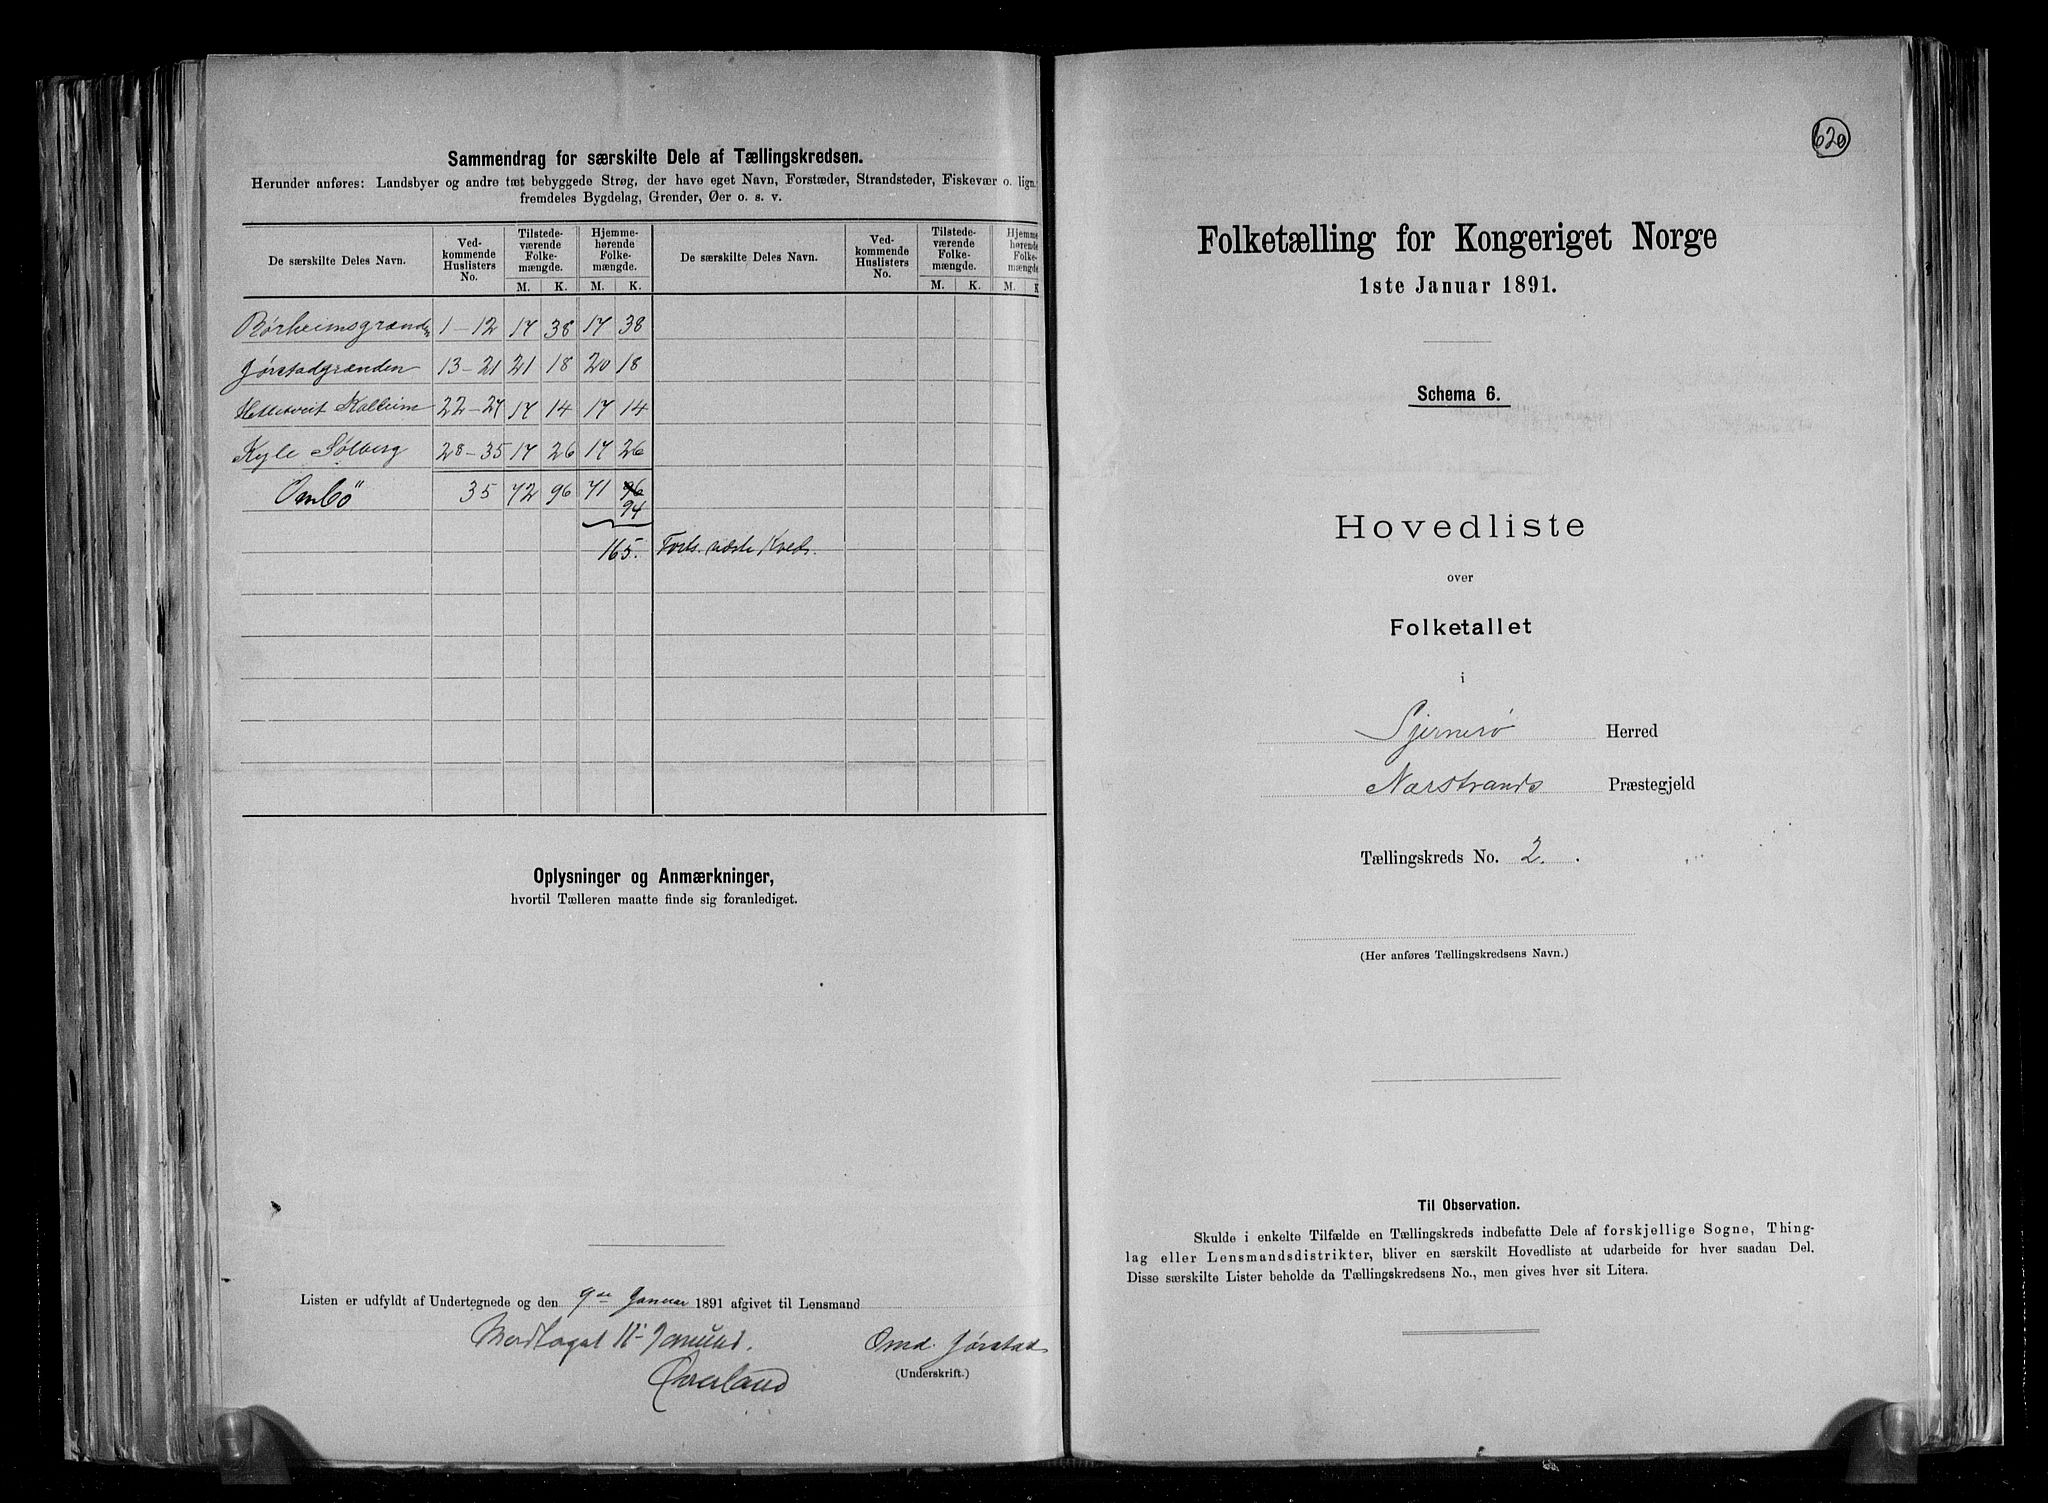 Sammendrag for særskilte Dele af Tællingskredsen.
Herunder anføres: Landsbyer og andre tæt bebyggede Strøg, der have eget Navn, Forstæder, Strandsteder, Fiskevær o. lign.
fremdeles Bygdelag, Grender, Øer o. s. v.
De særskilte Deles Navn. Ved-kommende Huslisters No. Tilstede-værende Folke-mængde. Hjemme-hørende Folke-mængde. De særskilte Deles Navn. Ved-kommende Huslisters No. Tilstede-værende Folke-mængde. Hjemme-hørende Folke-mængde
M. K. M. K. M. K. M. K
Børheimsgrænden 1-12 17 38 17 38
Jørstadgrænden 13-21 21 18 20 18
Hettetveit Kolleim 22-27 17 14 17 14
Kyle Solberg 28-35 17 26 17 26
Ombö 35 72 96 71 96
94
165. Forts. næste Kreds.
Oplysninger og Anmærkninger,
hvortil Tælleren maatte finde sig foranlediget.
Listen er udfyldt af Undertegnede og den 9de Januar 1891 afgivet til Lensmand
Modtaget 11' Januar. Omd. Jørstad
Overland (Underskrift.)
620
Folketælling for Kongeriget Norge
1ste Januar 1891.
Schema 6.
Hovedliste
over
Folketallet
i
Sjernerö Herred
Nærstrands Præstegjeld
Tællingskreds No. 2.
(Her anføres Tællingskredsens Navn.)
Til Observation.
Skulde i enkelte Tilfælde en Tællingskreds indbefatte Dele af forskjellige Sogne, Thing-
lag eller Lensmandsdistrikter, bliver en særskilt Hovedliste at udarbeide for hver saadan Del.
Disse særskilte Lister beholde da Tællingskredsens No., men gives hver sit Litera.